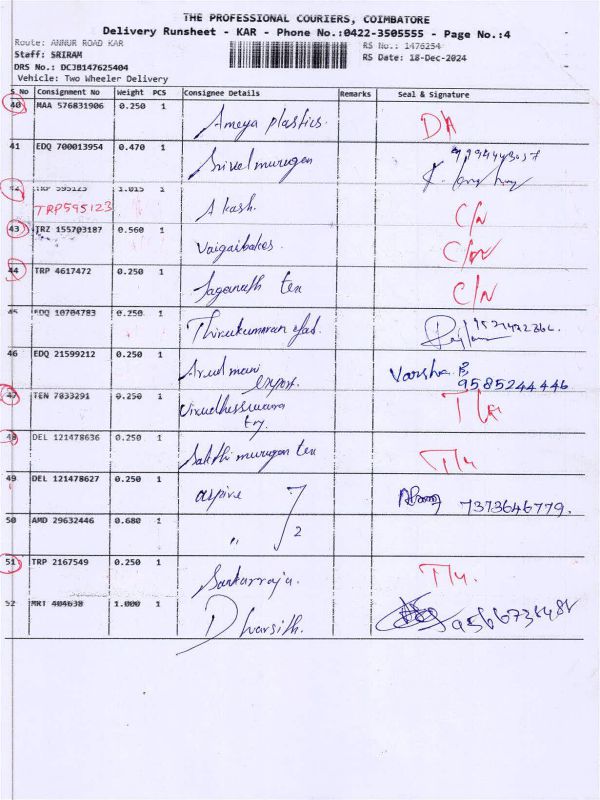 THE PROFESSIONAL COURIERS, COIMBATORE
Delivery Runsheet - KAR - Phone No.:0422-3505555 - Page No.:4
Route: ANNUR ROAD KAR
RS No.: 1476254
Staff: SRIRAM
RS Date: 18-Dec-2024
DRS No.: DCJB147625404
Vehicle: Two Wheeler Delivery
S No Consignment No Weight PCS Consignee Details Remarks Seal & Signature
40 MAA 576831906 0.250 1 Ameya plastics. DA
41 EDQ 700013954 0.470 1 Srivelmurugan
42 TRP 595123 1.015 1 Akash. C/N
TRP595123
43 TRZ 155703187 0.560 1 Vaigaibakes. C/N
44 TRP 4617472 0.250 1 Jaganath tex C/N
45 EDQ 10704783 0.250 1 Thirukumaran
46 EDQ 21599212 0.250 1 Arulmuri export. Varsha.B
9585244446
47 TEN 7033291 0.250 1
48 DEL 121478636 0.250 1 Sakthi murugan tex
49 DEL 121478627 0.250 1 aspire 7373646779.
50 AMD 29632446 0.680 1 " 2
51 TRP 2167549 0.250 1 Sankarraja.
52 MRT 404638 1.000 1 Dharsith.